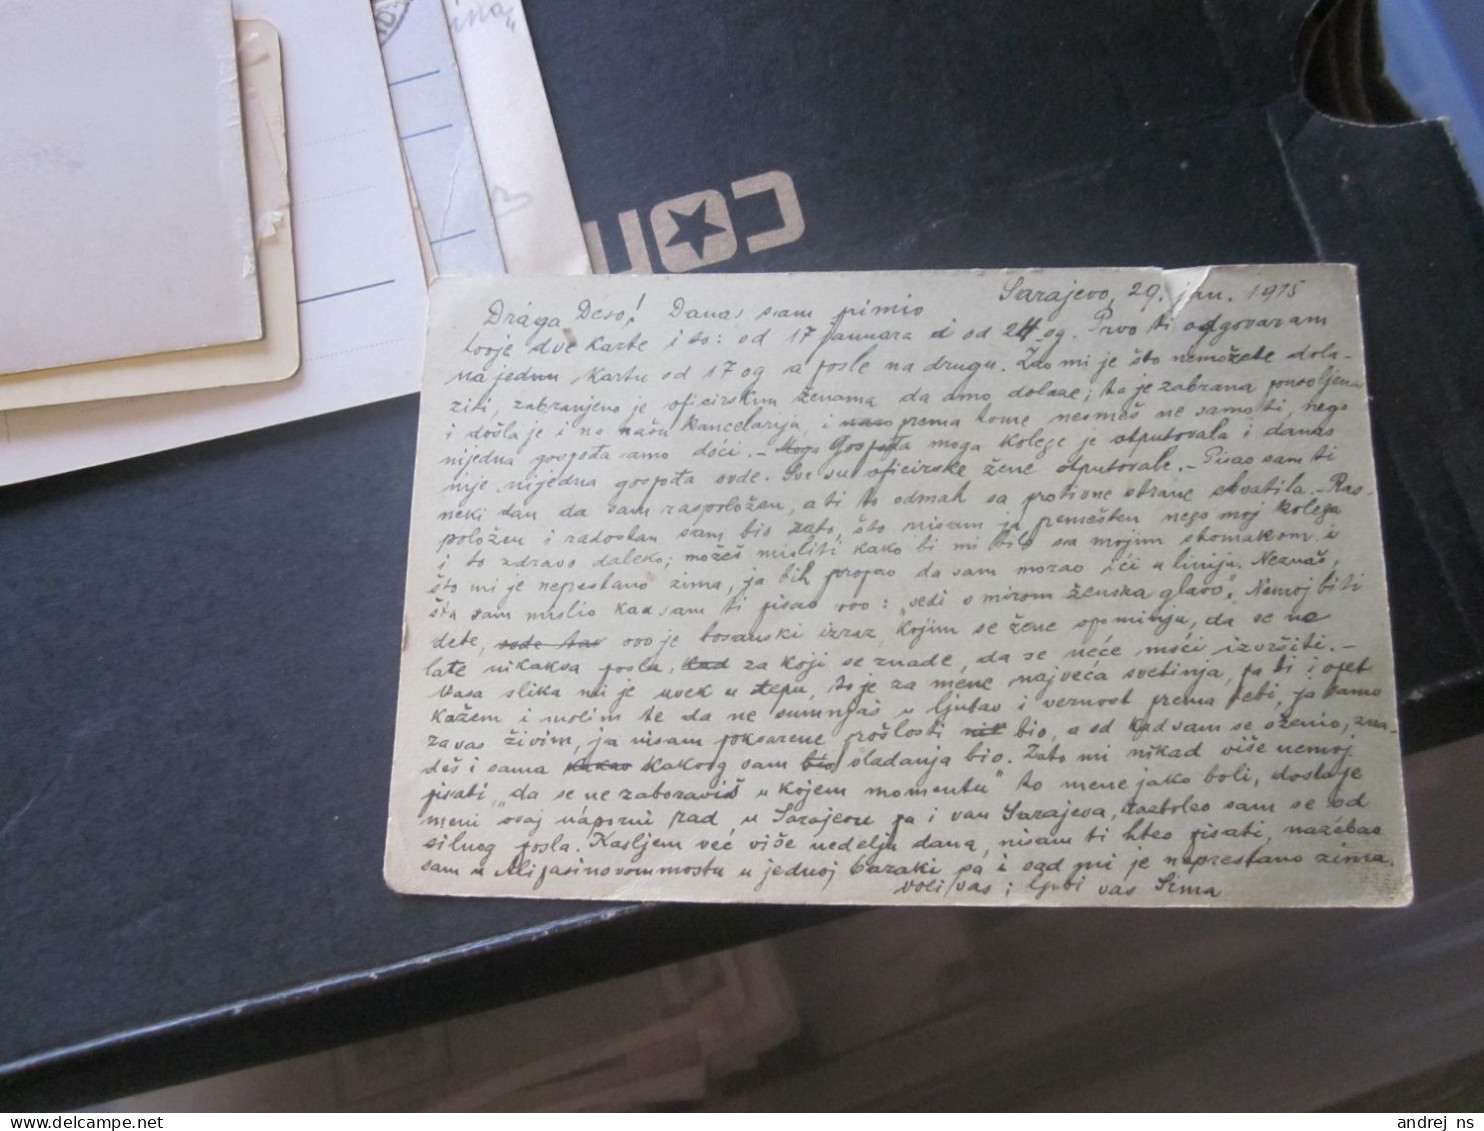 CON
Sarajevo, 29. jan. 1915
Drága Deso! Danas sam pimio
tvoje dve karte i to: od 17 januara i od 24 og. Prvo ti odgovaram
na jednu kartu od 17 og a posle na drugu. Žao mi je što nemožete dola-
ziti, zabranjeno je oficirskim ženama da amo dolaze; to je zabrana ponovljena
i došla je i na našu kancelariju, i prema tome nesmeš ne samo ti, nego
nijedna gospođa amo doći. - Moga Gospođa moga kolege je otputovala i danas
nije nijedna gospođa ovde. Sve su oficirske žene otputovale. - Pisao sam ti
neki dan da sam raspoložen, a ti to odmah sa protivne strane shvatila. - Ras-
položen i radostan sam bio zato, što nisam ja premešten nego moj kolega
i to zdravo daleko; možeš misliti kako bi mi bilo sa mojim stomakom i
što mi je neprestano zima, ja bih propao da sam morao ići u liniju. Neznaš,
šta sam mislio kad sam ti pisao ovo: "sedi s mirom ženska glavo". Nemoj biti
dete, ovo je bosanski izraz, kojim se žene opominju, da se ne
late nikakva posla, kad za koji se znade, da se neće moći izvršiti. -
Vasa slika mi je uvek u džepu, to je za mene najveća svetinja, pa ti i opet
kažem i molim te da ne sumnjaš u ljubav i vernost prema tebi, ja samo
za vas živim, ja nisam pokvarene prošlosti nit bio, a od kad sam se oženio, zna-
deš i sama kakvog sam bio vladanja bio. Zato mi nikad više nemoj
pisati "da se ne zaboraviš u kojem momentu" to mene jako boli, dosta je
meni ovaj náporni rad, u Sarajevu pa i van Sarajeva, razboleo sam se od
silnog posla. Kasljem već više nedelja dana, nisam ti hteo pisati, nazebao
sam u Alipašinovommostu u jednoj baraki pa i sad mi je neprestano zima.
Voli vas i ljubi vas Sima
andrej ns